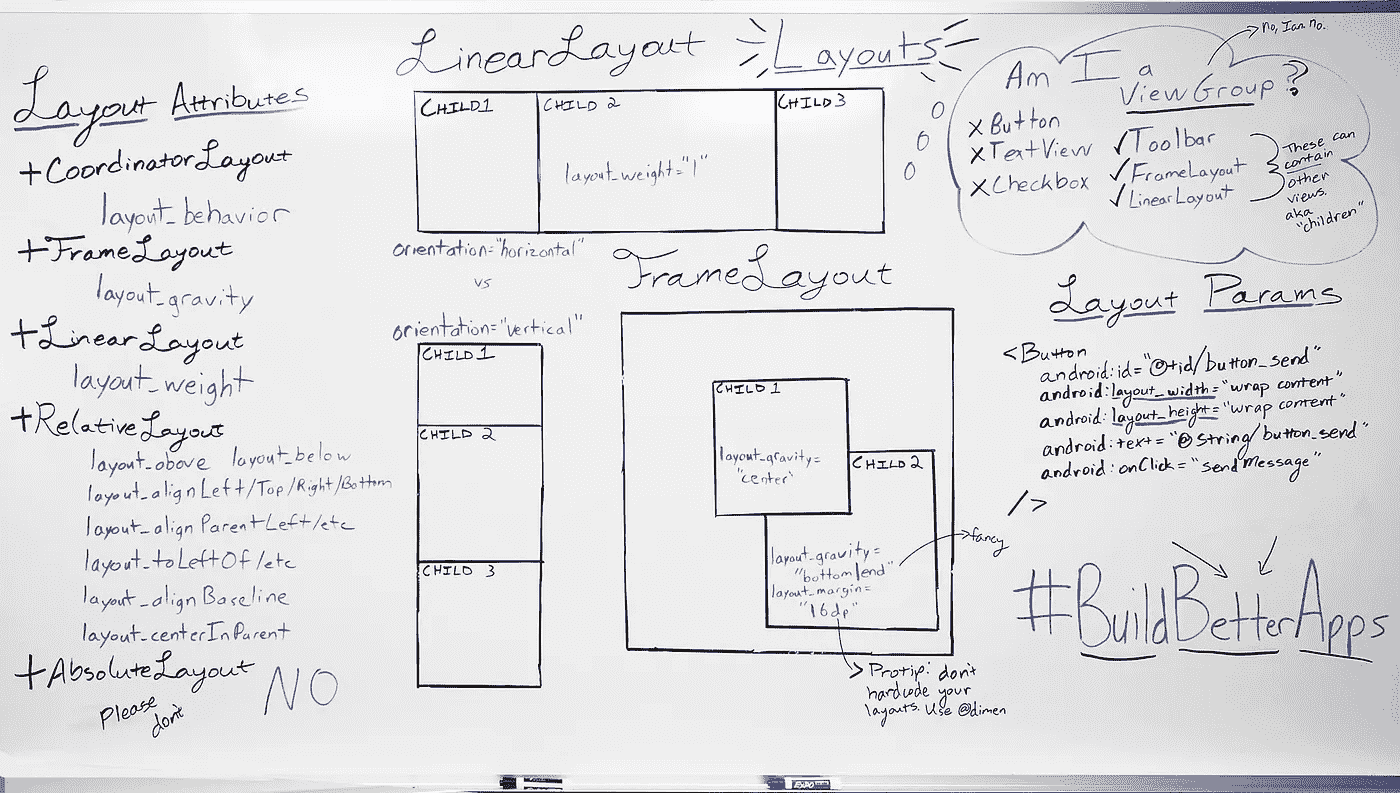 Layouts
Layout Attributes
+CoordinatorLayout
layout_behavior
+FrameLayout
layout_gravity
+LinearLayout
layout_weight
+RelativeLayout
layout_above layout_below
layout_alignLeft/Top/Right/Bottom
layout_alignParentLeft/etc
layout_toLeftOf/etc
layout_alignBaseline
layout_centerInParent
+AbsoluteLayout
Please
don't
NO
LinearLayout
CHILD 1
CHILD 2
CHILD 3
layout_weight="1"
orientation="horizontal"
vs
orientation="vertical"
CHILD 1
CHILD 2
CHILD 3
FrameLayout
CHILD 1
layout_gravity=
"center"
CHILD 2
layout_gravity=
"bottom|end"
layout_margin=
"16dp"
fancy
Protip: don't
hardcode your
layouts. Use @dimen
Am I a
ViewGroup?
No, Ian no.
X Button
X TextView
X Checkbox
✓ Toolbar
✓ FrameLayout
✓ LinearLayout
These can
contain
other
views.
aka
"children"
Layout Params
<Button
android:id="@+id/button_send"
android:layout_width="wrap content"
android:layout_height="wrap content"
android:text="@string/button_send"
android:onClick="sendMessage"
/>
#BuildBetterApps
EXPO